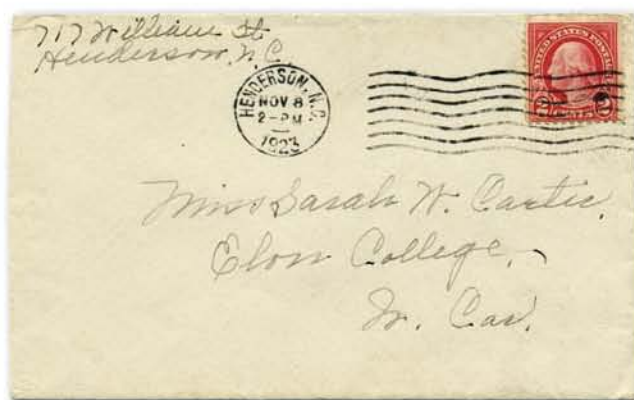 717 William St
Henderson, N.C.
HENDERSON, N.C.
NOV 8
2-PM
1923
UNITED STATES POSTAGE
2 CENTS 2
Miss Sarah W. Carter,
Elon College,
N. Car.